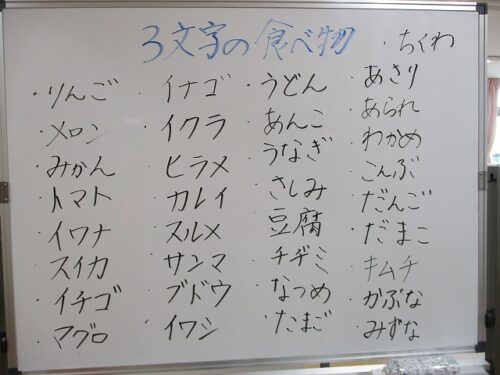 3文字の食べ物
・りんご
・メロン
・みかん
・トマト
・イワナ
・スイカ
・イチゴ
・マグロ
・イナゴ
・イクラ
・ヒラメ
・カレイ
・スルメ
・サンマ
・ブドウ
・イワシ
・うどん
・あんこ
・うなぎ
・さしみ
・豆腐
・チヂミ
・なつめ
・たまご
・ちくわ
・あさり
・あられ
・わかめ
・こんぶ
・だんご
・だまこ
・キムチ
・かぶな
・みずな